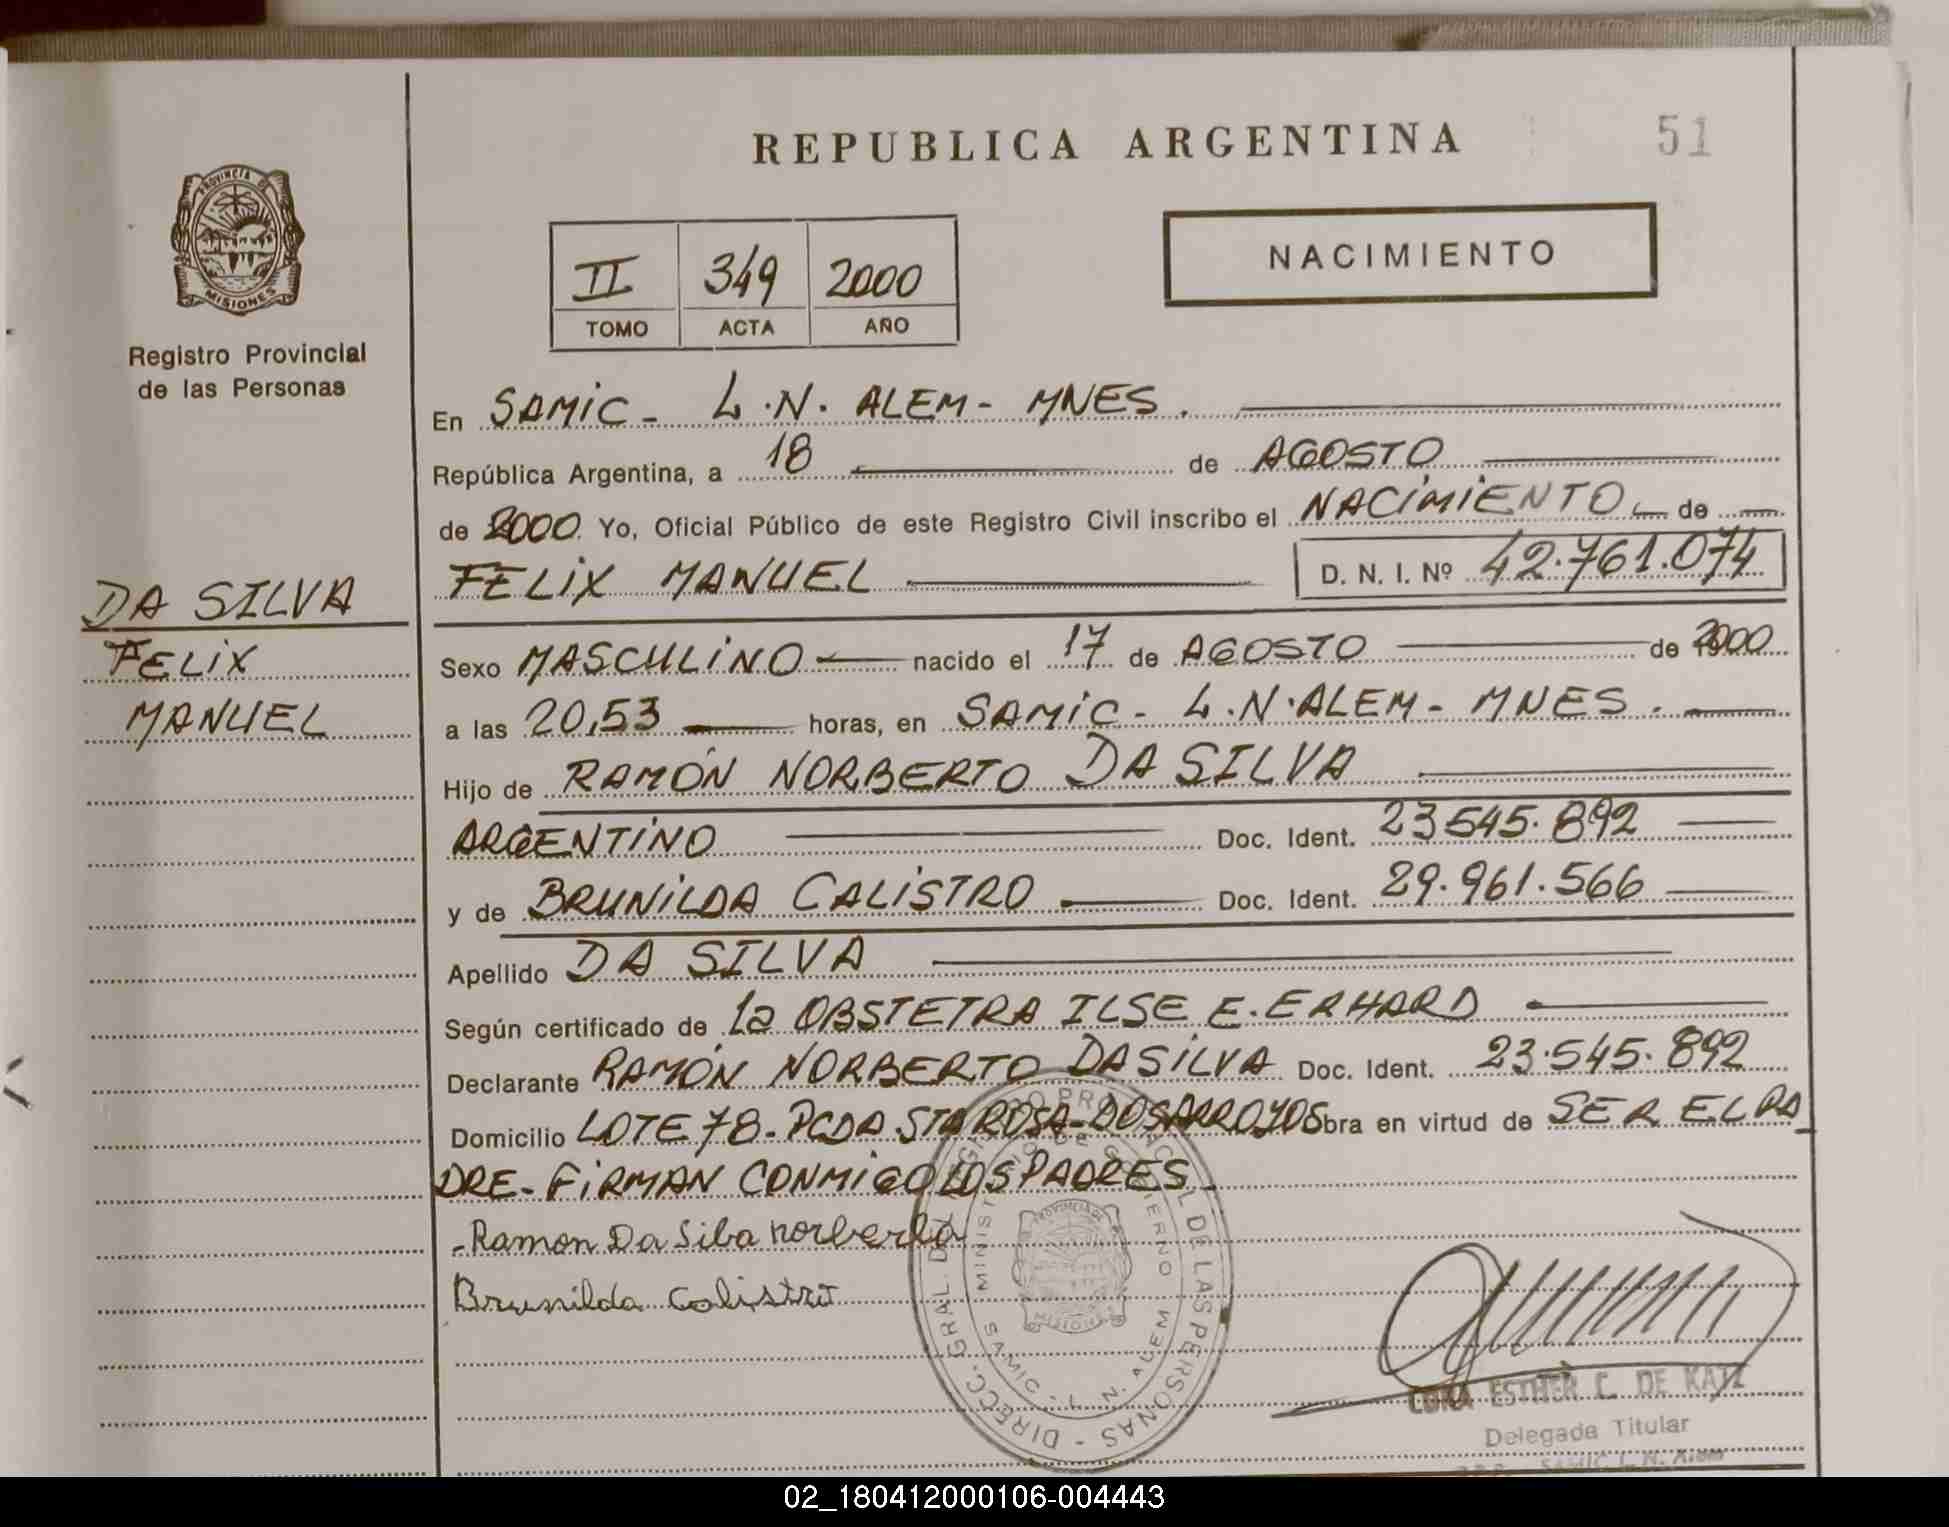 REPUBLICA ARGENTINA
51
PROVINCIA DE
MISIONES
Registro Provincial
de las Personas
II 349 2000
TOMO ACTA AÑO
NACIMIENTO
En SAMIC - L.N. ALEM - MNES.
República Argentina, a 18 de AGOSTO
de 2000. Yo, Oficial Público de este Registro Civil inscribo el NACIMIENTO de
FELIX MANUEL D. N. I. Nº 42.761.074
DA SILVA
FELIX
MANUEL
Sexo MASCULINO nacido el 17 de AGOSTO de 2000
a las 20,53 horas, en SAMIC - L.N.ALEM - MNES.
Hijo de RAMÓN NORBERTO DA SILVA
ARGENTINO Doc. Ident. 23545.892
y de BRUNILDA CALISTRO Doc. Ident. 29.961.566
Apellido DA SILVA
Según certificado de la OBSTETRA ILSE E. ERHARD
Declarante RAMÓN NORBERTO DA SILVA Doc. Ident. 23.545.892
Domicilio LOTE 78 - PCDA. STA ROSA - DOS ARROYOS bra en virtud de SER EL PA
DRE - FIRMAN CONMIGO LOS PADRES.
Ramon Da Silba norberto
Brunilda Calistro
DIRECC. GRAL. DEL REGISTRO PROVINCIAL DE LAS PERSONAS
MINISTERIO DE GOBIERNO
SAMIC - L. N. ALEM
PROVINCIA DE
MISIONES
ESTHER C. DE KATZ
Delegada Titular
SAMIC L. N. Alem
02_180412000106-004443